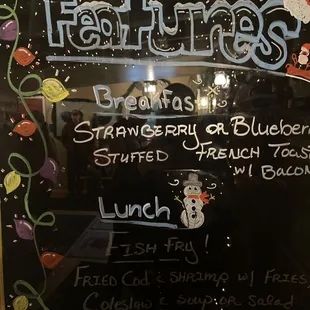 Features
Breakfast
STRAWBERRY OR Blueber
STUFFED FRENCH TOAST
w/ BACON
Lunch
FISH FRY!
FRIED COD & SHRIMP w/ FRIES
Coleslaw & SOUP OR Salad